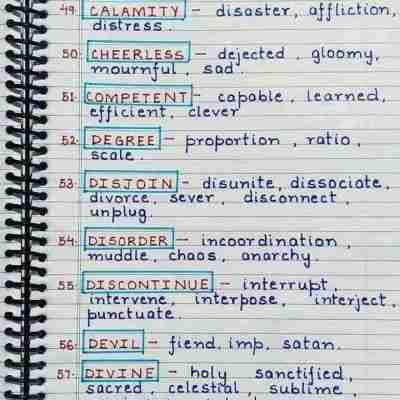 49. CALAMITY - disaster, affliction,
distress.
50. CHEERLESS - dejected, gloomy,
mournful, sad.
51. COMPETENT - capable, learned,
efficient, clever
52. DEGREE - proportion, ratio,
scale.
53. DISJOIN - disunite, dissociate,
divorce, sever, disconnect,
unplug.
54. DISORDER - incoordination,
muddle, chaos, anarchy.
55. DISCONTINUE - interrupt,
intervene, interpose, interject,
punctuate.
56. DEVIL - fiend, imp, satan.
57. DIVINE - holy sanctified,
sacred, celestial, sublime,